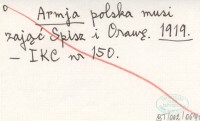 Armja polska musi
zająć Spisz i Orawę. 1919.
– IKC nr 150.